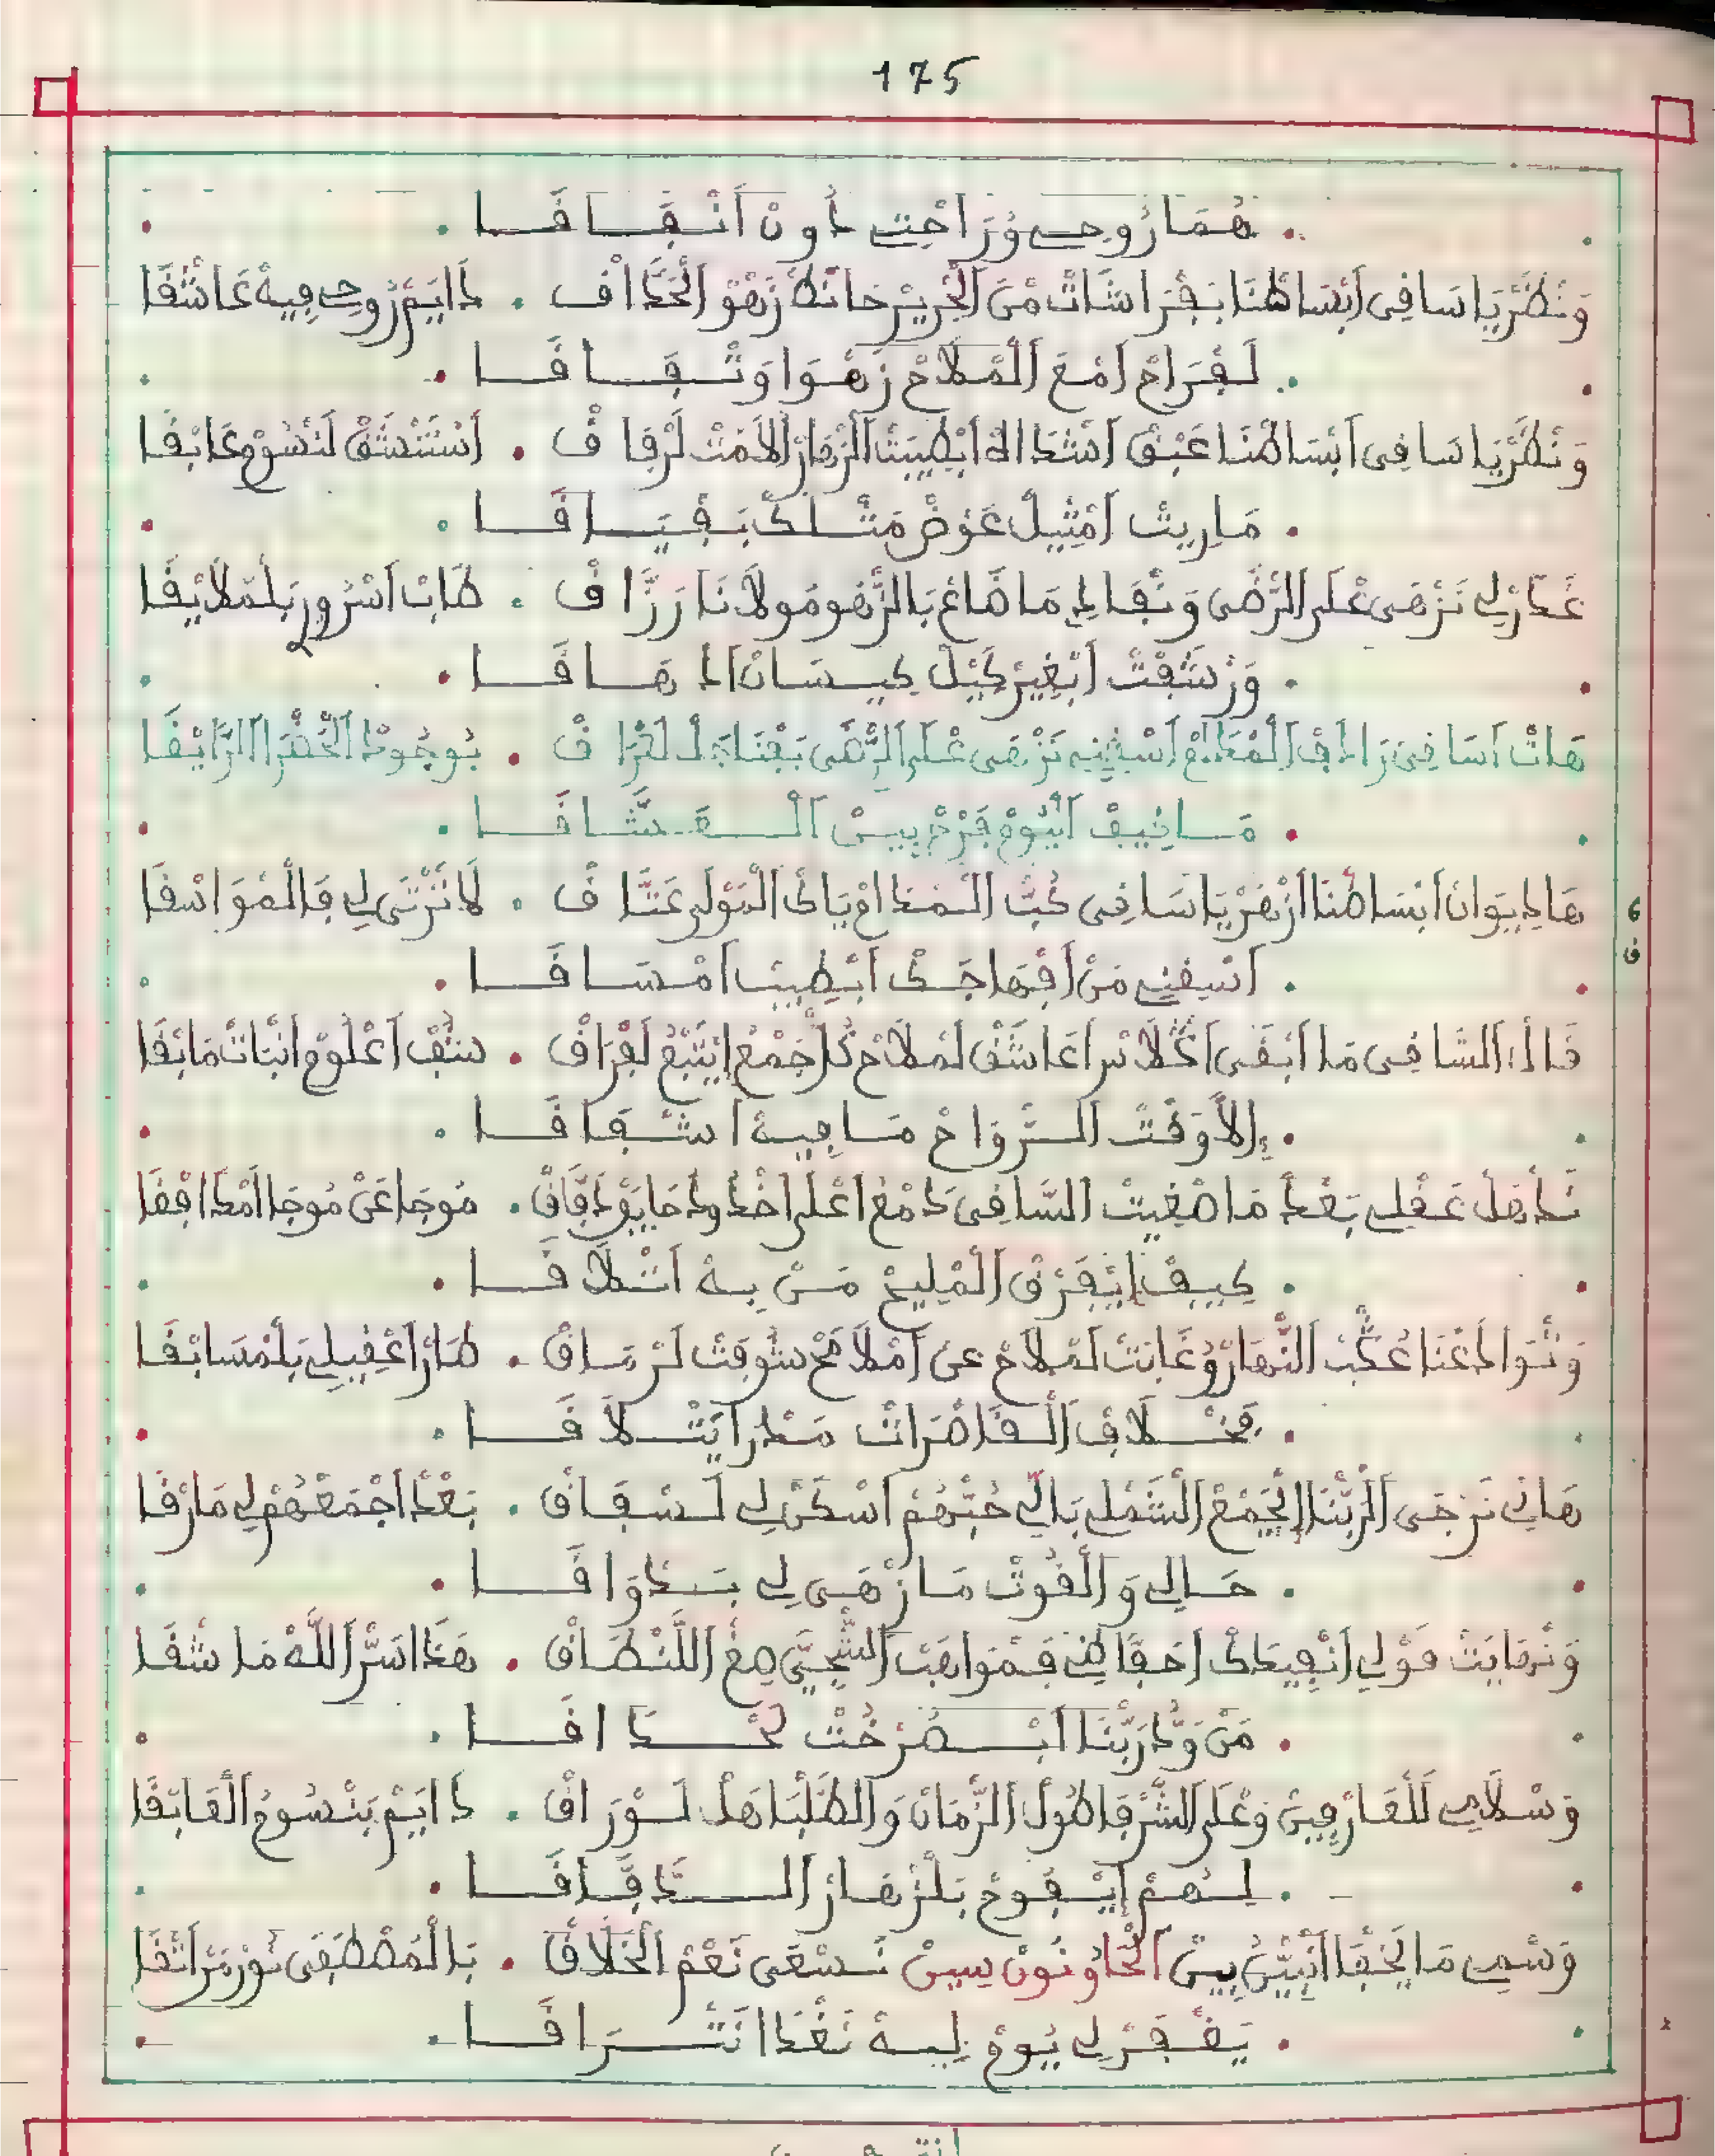 175
هُمَا رُوحِي وُرَاحْتِي دُونْ اَنْفَاقَا
وَنْظَرْ يَا سَاقِي اَبْسَاطْنَا بَفْرَاشَاتْ مْنَ الْحْرِيرْ حَانَطْ زَهْوْ الْحَدَّاقْ . دَايَمْ رُوحِي فِيهْ عَاشْقَا
لَفْرَاحْ اَمْعَ الْمْلَاحْ زَهْوَا وَتْفَاقَا
وَنْظَرْ يَا سَاقِي اَبْسَاطْنَا عَبْقْ اَشْدَاهْ اَبْطِيبْ الَزْهَارْ لَامَتْ لَرْفَاقْ . اَسْتَنْشَقْ لَنْسُومْ عَابْقَا
مَارِيتْ اَمْثِيلْ عَوْضْ مَتْلَكْ بَفْيَاقَا
غَدَرْلِي نَزْهَى عْلَى الرْضَى وَنْقَالِي مَا ضَاعْ بَالزْهُو مُولَانَا رَزَّاقْ . طَابْ اَسْرُورِي بَلْمْلَايْقَا
وَرْشَفْتْ اَبْغِيرْ كِيلْ كِيسَانْ اَدْهَاقَا
هَاتْ اَسَاقِي رَادَفْ الْمْدَامْ اَسْقِينِي نَزْهَى عْلَى الرْضَى بَفْنَاجَلْ لَغْرَاقْ . بُوجُودْ الْخَضْرَا الرَّايْقَا
مَا نْخِيفْ اَلْيُومْ فَرْحْ بِينْ الْعَشَّاقَا
هَادِيوَانْ اَبْسَاطْنَا اَزْهَرْ يَا سَاقِي كُبّْ الْمْدَامْ يَاكْ الْمَوْلَى عَتَّاقْ . لَا تَرْثَى لِي فَالْمْوَاسْقَا
6
ق
اَسْقِينِي مَنْ اَقْهَاجَكْ اَبْطِيبْ اَمْسَاقَا
قَالْ السَّاقِي مَا اَبْقَى اَكْلَاسْ اَعَاشَقْ لَمْلَاحْ كُلّْ جَمْعْ اِيتَبْعُ لَفْرَاقْ . شَفْ اَعْلُومْ اَنْبَاتْ مَايْقَا
اِلَا وَقْتْ الرْوَاحْ مَا فِيهْ اَشْفَاقَا
نَذْهَلْ عَقْلِي بَعْدْ مَا صْغِيتْ السَّاقِي دَمْعْ اعْلَى اخْدُودْ حَايَوْ دَفَّاقْ . مُوجَا عَنْ مُوجَا اَمْدَافْقَا
كِيفْ اِيفَرْقْ الْمْلِيحْ مَنْ بِهْ اَتْلَاقَا
وَتْوَادَعْنَا عُكْبْ النْهَارْ وُغَابَتْ لَمْلَاحْ عَنْ اَمْلَامَحْ شُوفَتْ لَرْمَاقْ . طَارْ اَعْقِيلِي بَلْمْسَابْقَا
فَخْلَافْ الْقَاصْرَاتْ مَدْرَا نَتْلَاقَا
هَانِي نَرْجَى الْرَبْنَا اِيجْمَعْ الشَّمْلِي بَاللِّي حُبّْهُمْ اَسْكَنْ لِي لَشْفَاقْ . بَعْدْ اجْمَعْهُمْ لِي مَارْقَا
حَالِي وَالْقُوتْ مَا زْهَى لِي بَدْوَاقَا
وَنْهَايَتْ قَوْلِي اَنْفِيدَكْ اَحَفَّاظِي فَمْوَاهَبْ السْجِيَّ صِغْ اللَّنْطَاقْ . هَدَا سَرّْ اللَّهْ مَا شْقَا
مَنْ وَدّْ رَبْنَا اَبْصُرْخْتْ لَحْدَاقَا
وَسْلَامِي لَلْعَارْفِينْ وَعْلَى الشّْرْفَا طُولْ الزْمَانْ وَالطَّلْبَا هَلْ لَوْرَاقْ . دَايَمْ بَنْسُومُ الْعَابْقَا
لِهُمْ اِيفُوحْ بَلَزْهَارْ الدَّفَّاقَا
وَسْمِي مَا يَخْفَا اَنْبَيّْنُ بِينْ الْحَا وْنُونْ سِينْ نَسْعَى نَعْمْ الْخَلَّاقْ . بَالْمُصْطَفَى نُورْ مَرَاشْقَا
يَغْفَرْ لِي يُومْ لِيهْ نَغْدَا نَتْرَاقَا